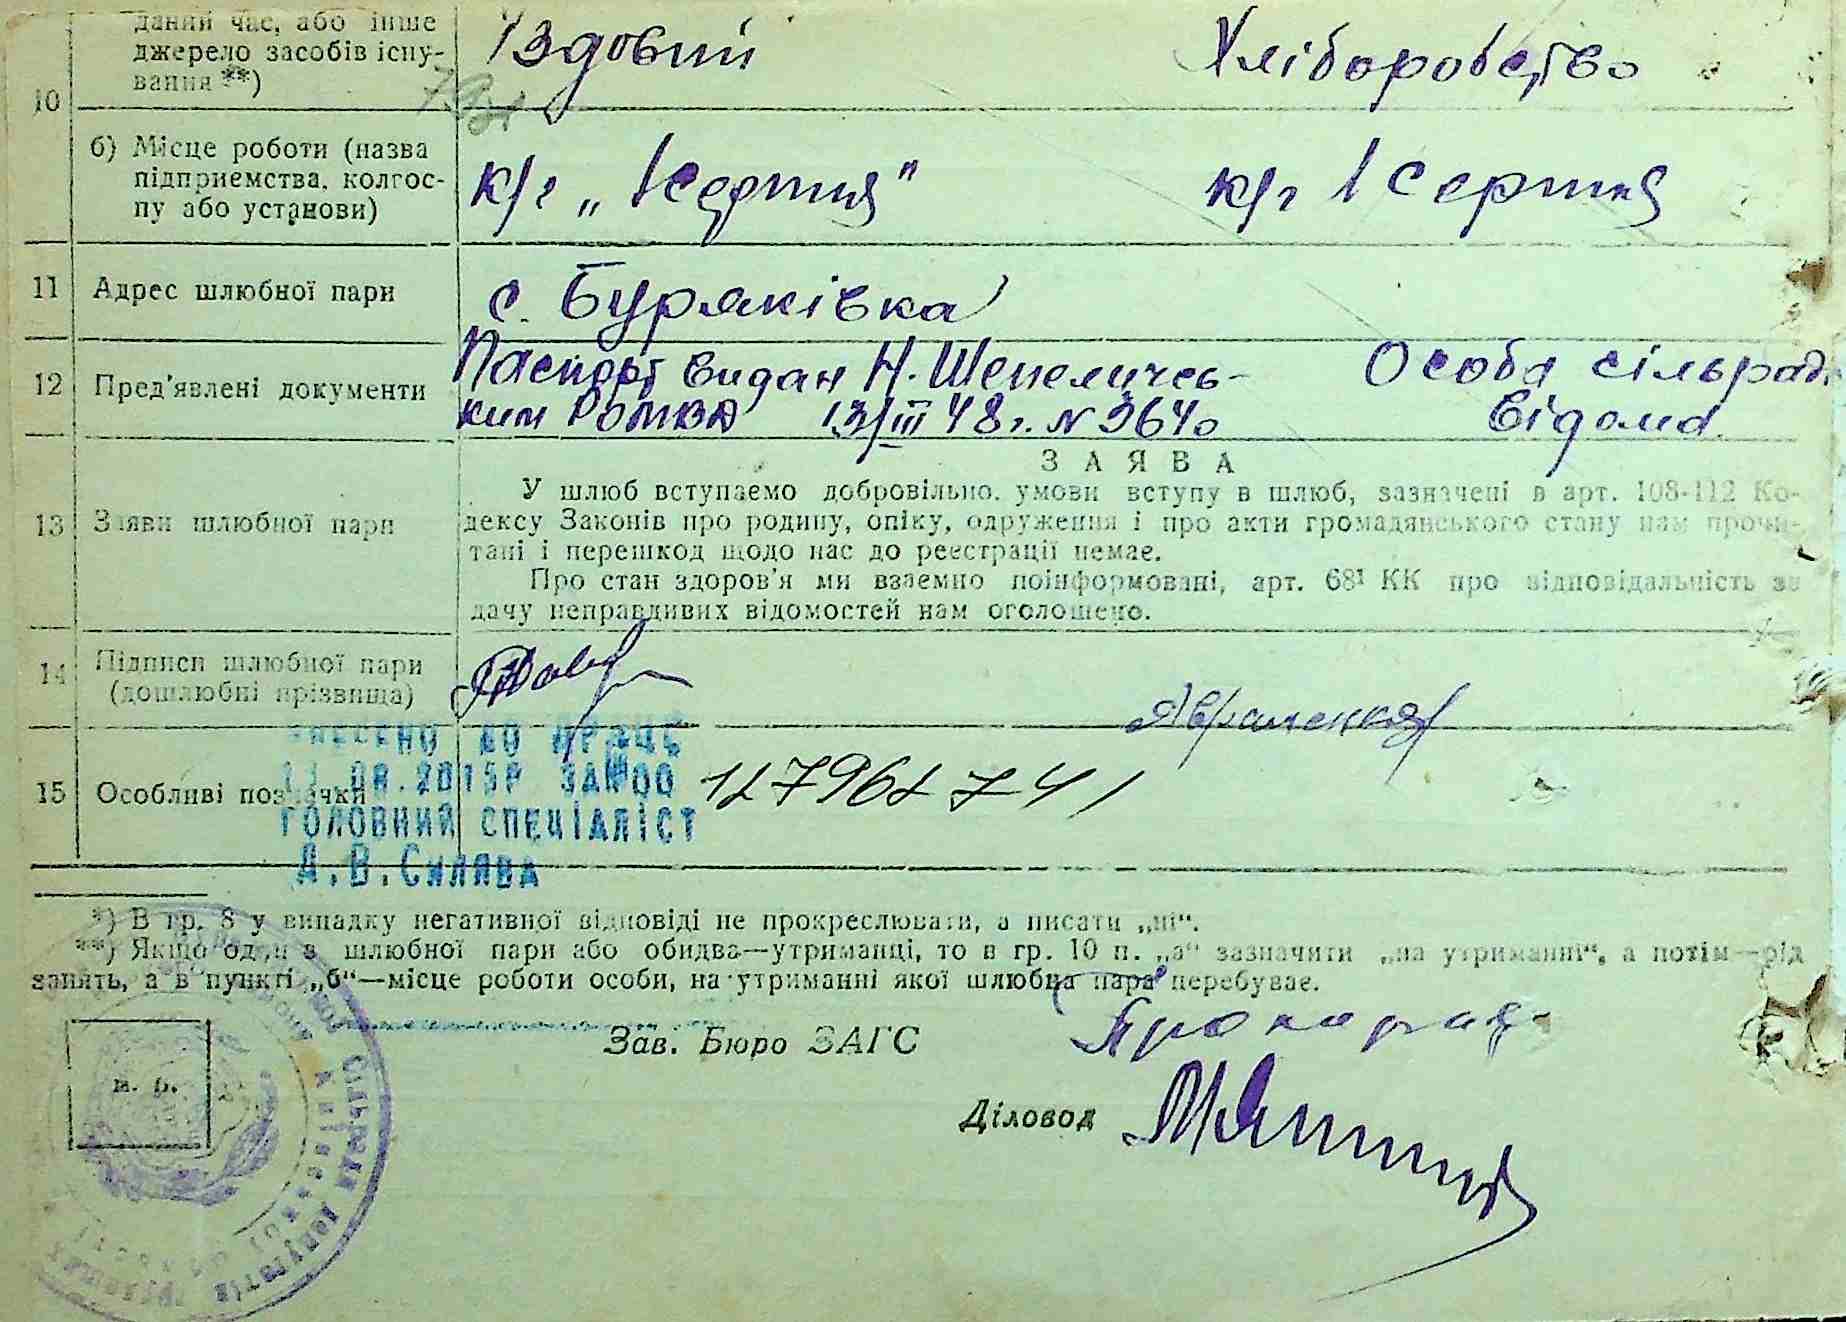 даний час, або інше
джерело засобів існу-
вання **)
Їздовий
Хліборобство
10
б) Місце роботи (назва
підприємства, колгос-
пу або установи)
к/г „1 серпня"
к/г 1 серпня
11 Адрес шлюбної пари
с. Буряківка
12 Пред'явлені документи
Паспорт видан Н. Шепеличсь-
ким РОМВД 13/III 48 г. N 9640
Особа сільраді
відома.
ЗАЯВА
13 Заяви шлюбної пари
У шлюб вступаємо добровільно. умови вступу в шлюб, зазначені в арт. 108-112 Ко-
дексу Законів про родину, опіку, одруження і про акти громадянського стану нам прочи-
тані і перешкод щодо нас до реєстрації немає.
Про стан здоров'я ми взаємно поінформовані, арт. 68¹ КК про відповідальність за
дачу неправдивих відомостей нам оголошено.
14 Підписи шлюбної пари
(дошлюбні прізвища)
Авраменко
15 Особливі позначки
ВНЕСЕНО ДО ДРАЦС
.08.2015Р ЗА №00
ГОЛОВНИЙ СПЕЦІАЛІСТ
А.В.Силява
*) В гр. 8 у випадку негативної відповіді не прокреслювати, а писати „ні“.
**) Якщо один з шлюбної пари або обидва—утриманці, то в гр. 10 п. „а“ зазначити „на утриманні“, а потім—рід
занять, а в пункті „б“—місце роботи особи, на утриманні якої шлюбна пара перебуває.
Зав. Бюро ЗАГС
м. б.
Діловод